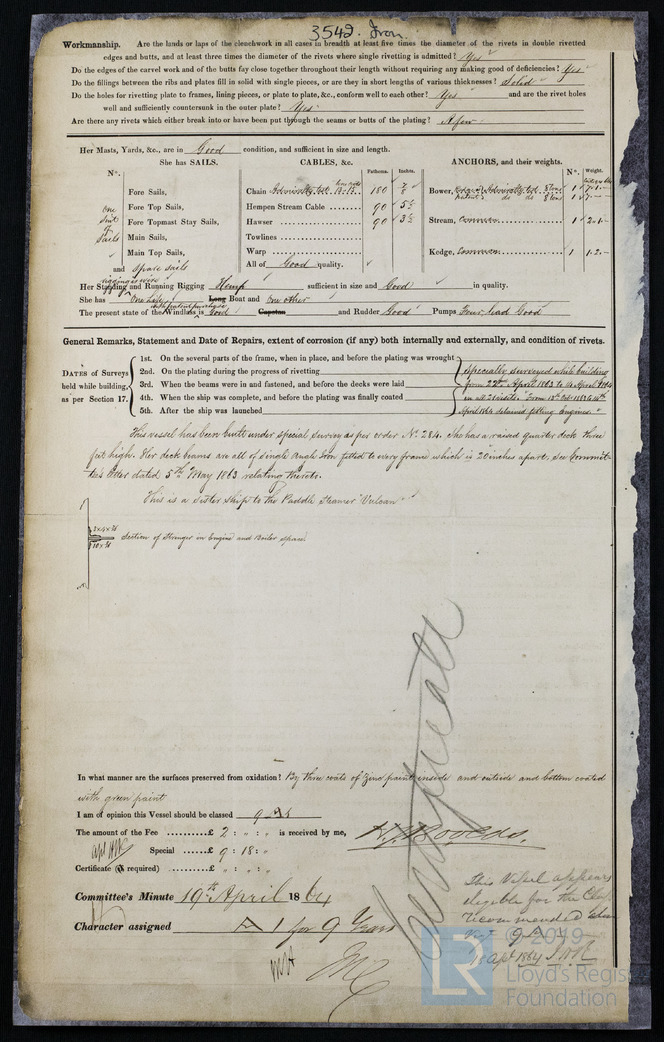 3542. Iron
Workmanship. Are the lands or laps of the clenchwork in all cases in breadth at least five times the diameter of the rivets in double rivetted
edges and butts, and at least three times the diameter of the rivets where single rivetting is admitted? Yes
Do the edges of the carvel work and of the butts fay close together throughout their length without requiring any making good of deficiencies? Yes
Do the fillings between the ribs and plates fill in solid with single pieces, or are they in short lengths of various thicknesses? Solid
Do the holes for rivetting plate to frames, lining pieces, or plate to plate, &c., conform well to each other? Yes and are the rivet holes
well and sufficiently countersunk in the outer plate? Yes
Are there any rivets which either break into or have been put through the seams or butts of the plating? A few
Her Masts, Yards, &c., are in Good condition, and sufficient in size and length.
She has SAILS. CABLES, &c. ANCHORS, and their weights.
N°. Fathoms. Inches. N°. Weight.
Fore Sails, Chain 180 7/8 Bower,
Fore Top Sails, Hempen Stream Cable 90
Fore Topmast Stay Sails, Hawser 90 Stream, Common 1 2-1-
one suit of Sails
Main Sails, Towlines
Main Top Sails, Warp Kedge, Common 1 1-2-
and Spare sails All of Good quality.
rigging wire
Her Standing and Running Rigging Hemp sufficient in size and Good in quality.
She has One Life Long Boat and One other
with patent purchase
The present state of the Windlass is Good Capstan and Rudder Good Pumps Four, lead Good
General Remarks, Statement and Date of Repairs, extent of corrosion (if any) both internally and externally, and condition of rivets.
DATES of Surveys held while building, as per Section 17.
1st. On the several parts of the frame, when in place, and before the plating was wrought
2nd. On the plating during the progress of rivetting
3rd. When the beams were in and fastened, and before the decks were laid
4th. When the ship was complete, and before the plating was finally coated
5th. After the ship was launched
Specially surveyed while building
from 22nd April 1863 to 14 April 1864
April 1864 detained fitting engines.
This vessel has been built under special survey as per order No. 284. She has a raised quarter deck three
feet high. Her deck beams are all of single angle Iron fitted to every frame which is 20 inches apart, see Commit-
tee's letter dated 5th May 1863 relating thereto.
This is a sister ship to the Paddle Steamer "Vulcan"
Section of Stringer in Engine and Boiler space.
In what manner are the surfaces preserved from oxidation? By three coats of Zinc paint inside and outside and bottom coated
with green paint
I am of opinion this Vessel should be classed
The amount of the Fee ..........£ 2 : " : " is received by me,
Special ......£ 9 : 18 : "
Certificate (if required) ........£ " : " : "
This Vessel appears
eligible for the Class
recommended
Committee's Minute 19th April 1864
Character assigned A 1 for 9 Years
© 2019
Lloyd's Register
Foundation
LR